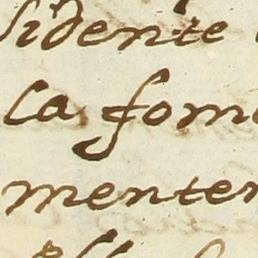 sidente
la fom
menter